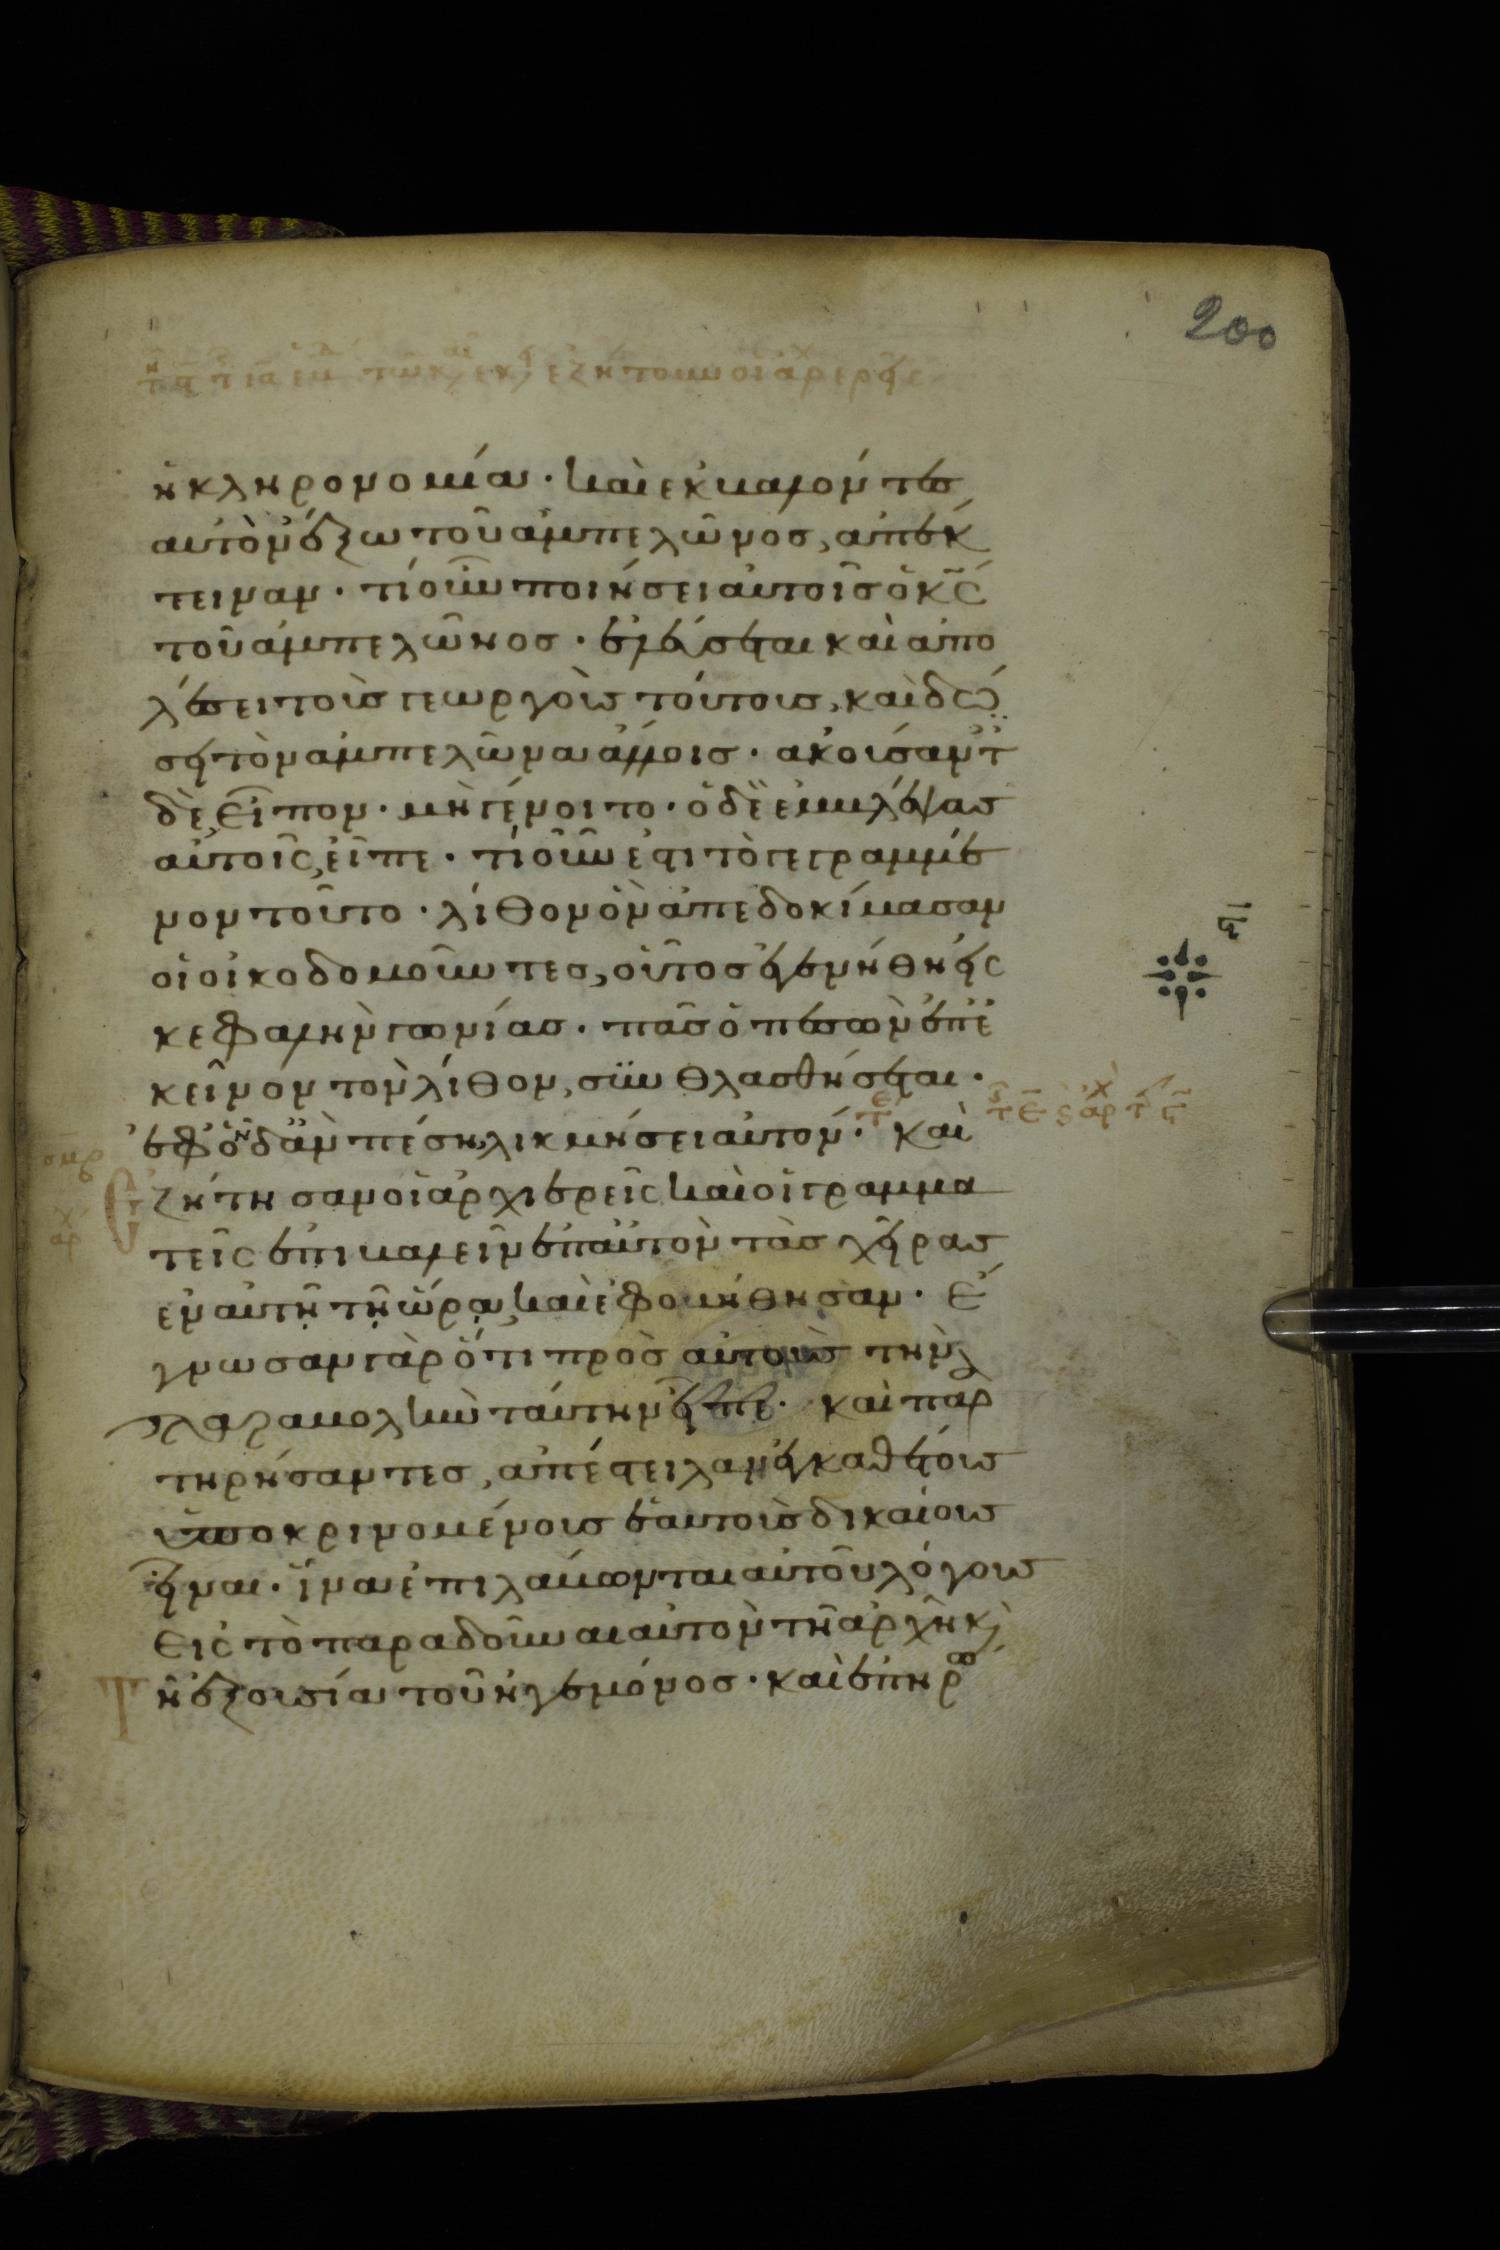 200
ἡ κληρονομία· καὶ ἐκβαλόντες
αὐτὸν ἔξω τοῦ ἀμπελῶνος, ἀπέκ
τειναν· τί οὖν ποιήσει αὐτοῖς ὁ κς
τοῦ ἀμπελῶνος· ἐλεύσεται καὶ ἀπο
λέσει τοὺς γεωργοὺς τούτους, καὶ δώ
σει τὸν ἀμπελῶνα ἄλλοις· ἀκούσαντ
δὲ εἶπον· μὴ γένοιτο· ὁ δὲ ἐμβλέψας
αὐτοῖς, εἶπε· τί οὖν ἐστι τὸ γεγραμμέ
νον τοῦτο· λίθον ὃν ἀπεδοκίμασαν
οἱ οἰκοδομοῦντες, οὗτος ἐγενήθη εἰς
κεφαλὴν γωνίας· πᾶς ὁ πεσὼν ἐπ ἐ
κεῖνον τὸν λίθον, συνθλασθήσεται·
ἐφ ὃν δ ἂν πέσῃ, λικμήσει αὐτόν· καὶ
ἐζήτησαν οἱ ἀρχιερεῖς καὶ οἱ γραμμα
τεῖς ἐπιβαλεῖν ἐπ αὐτὸν τὰς χεῖρας
ἐν αὐτῇ τῇ ὥρᾳ, καὶ ἐφοβήθησαν· ἔ
γνωσαν γὰρ ὅτι πρὸς αὐτοὺς τὴν
παραβολὴν ταύτην εἶπε· καὶ παρ
τηρήσαντες, ἀπέστειλαν ἐγκαθέτους
ὑποκρινομένους ἑαυτοὺς δικαίους
εἶναι· ἵνα ἐπιλάβωνται αὐτοῦ λόγου
εἰς τὸ παραδοῦναι αὐτὸν τῇ ἀρχῇ κ
τῇ ἐξουσίᾳ τοῦ ἡγεμόνος· καὶ ἐπηρώ